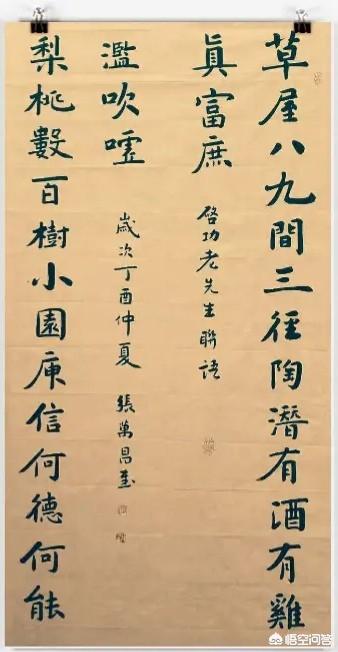 草屋八九間三徑陶潛有酒有雞
眞富庶
啓功老先生聯語
梨桃數百樹小園庾信何德何能
濫吹噓
歲次丁酉仲夏 張萬昌書
悟空问答